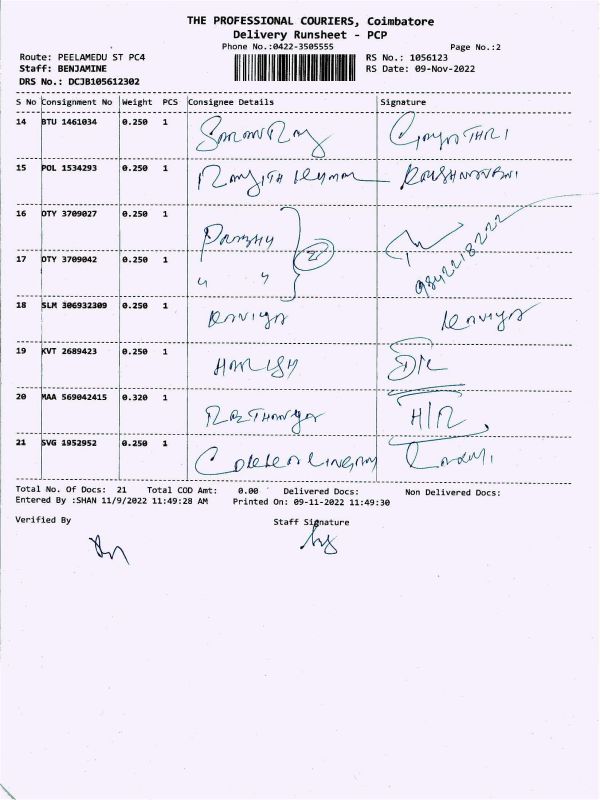 THE PROFESSIONAL COURIERS, Coimbatore
Delivery Runsheet - PCP
Phone No.:0422-3505555
Page No.:2
Route: PEELAMEDU ST PC4
RS No.: 1056123
Staff: BENJAMINE
RS Date: 09-Nov-2022
DRS No.: DCJB105612302
S No Consignment No Weight PCS Consignee Details Signature
14 BTU 1461034 0.250 1
15 POL 1534293 0.250 1 Ranjith Kumar
16 OTY 3709027 0.250 1 9842218222
17 OTY 3709042 0.250 1 " " 2
18 SLM 306932309 0.250 1 Kaviya Kaviya
19 KVT 2689423 0.250 1 HARISH
20 MAA 569042415 0.320 1 H/R
21 SVG 1952952 0.250 1
Total No. Of Docs: 21 Total COD Amt: 0.00 Delivered Docs: Non Delivered Docs:
Entered By :SHAN 11/9/2022 11:49:28 AM Printed On: 09-11-2022 11:49:30
Verified By Staff Signature